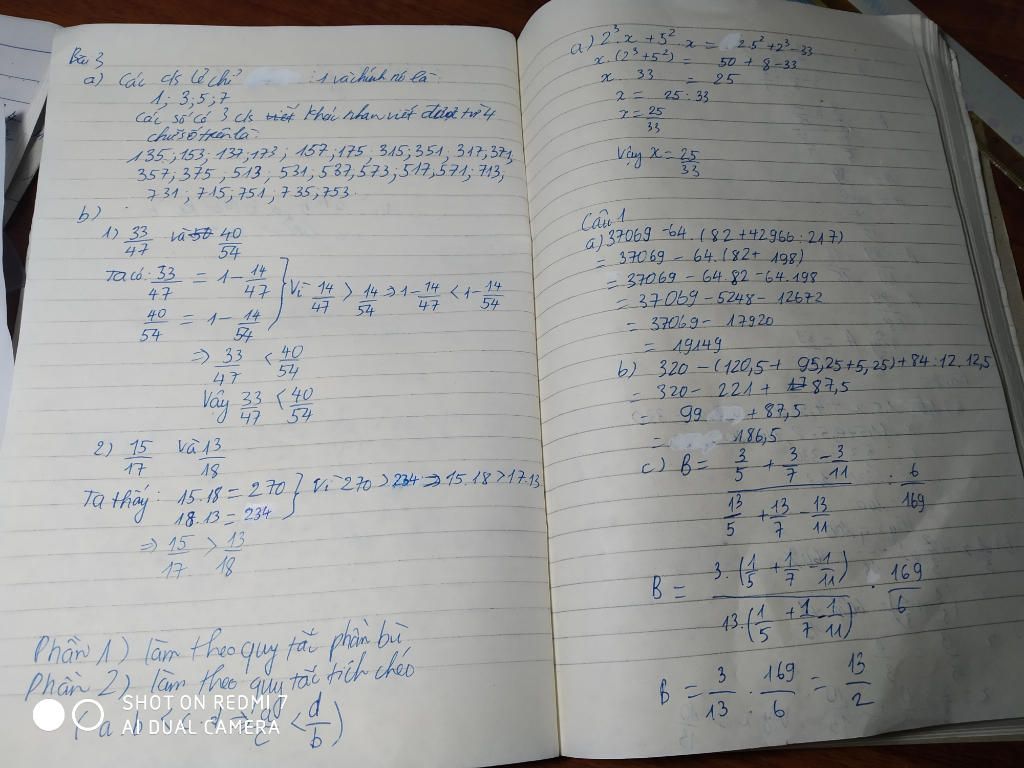 Bài 3
a) Các c/s lẻ chỉ : 1 và chính nó là:
1; 3; 5; 7
Các số có 3 c/s viết khác nhau viết được từ 4
chữ số trên là:
135; 153; 137; 173; 157; 175; 315; 351; 317; 371;
357; 375; 513; 531; 537; 573; 517; 571; 713;
731; 715; 751; 735; 753.
b)
1) 33/47 và 50 40/54
Ta có: 33/47 = 1 - 14/47
40/54 = 1 - 14/54 } Vì 14/47 > 14/54 => 1 - 14/47 < 1 - 14/54
=> 33/47 < 40/54
Vậy 33/47 < 40/54
2) 15/17 và 13/18
Ta thấy: 15.18 = 270
18.13 = 234 } Vì 270 > 234 => 15.18 > 17.13
=> 15/17 > 13/18
Phần 1) làm theo quy tắc phần bù
Phần 2) làm theo quy tắc tích chéo
(a b < < d/b)
SHOT ON REDMI 7
AI DUAL CAMERA
a) 2³.x + 5².x = 25² + 2³ - 33
x.(2³+5²) = 50 + 8 - 33
x. 33 = 25
x = 25:33
x = 25/33
Vậy x = 25/33
Câu 1
a) 37069 - 64.(82 + 42966:217)
= 37069 - 64.(82 + 198)
= 37069 - 64.82 - 64.198
= 37069 - 5248 - 12672
= 37069 - 17920
= 19149
b) 320 - (120,5 + 95,25 + 5,25) + 84:12.12,5
= 320 - 221 + 87,5
= 99 + 87,5
= 186,5
c) B = (3/5 + 3/7 - 3/11)/(13/5 + 13/7 - 13/11) : 6/169
B = 3.(1/5 + 1/7 - 1/11)/13.(1/5 + 1/7 - 1/11) . 169/6
B = 3/13 . 169/6 = 13/2